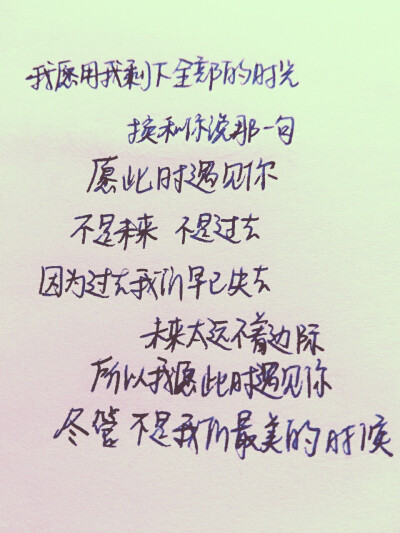 我愿用我剩下全部的时光
换和你说那一句
愿此时遇见你
不是未来 不是过去
因为过去我们早已失去
未来太远不着边际
所以我愿此时遇见你
尽管不是我们最美的时候